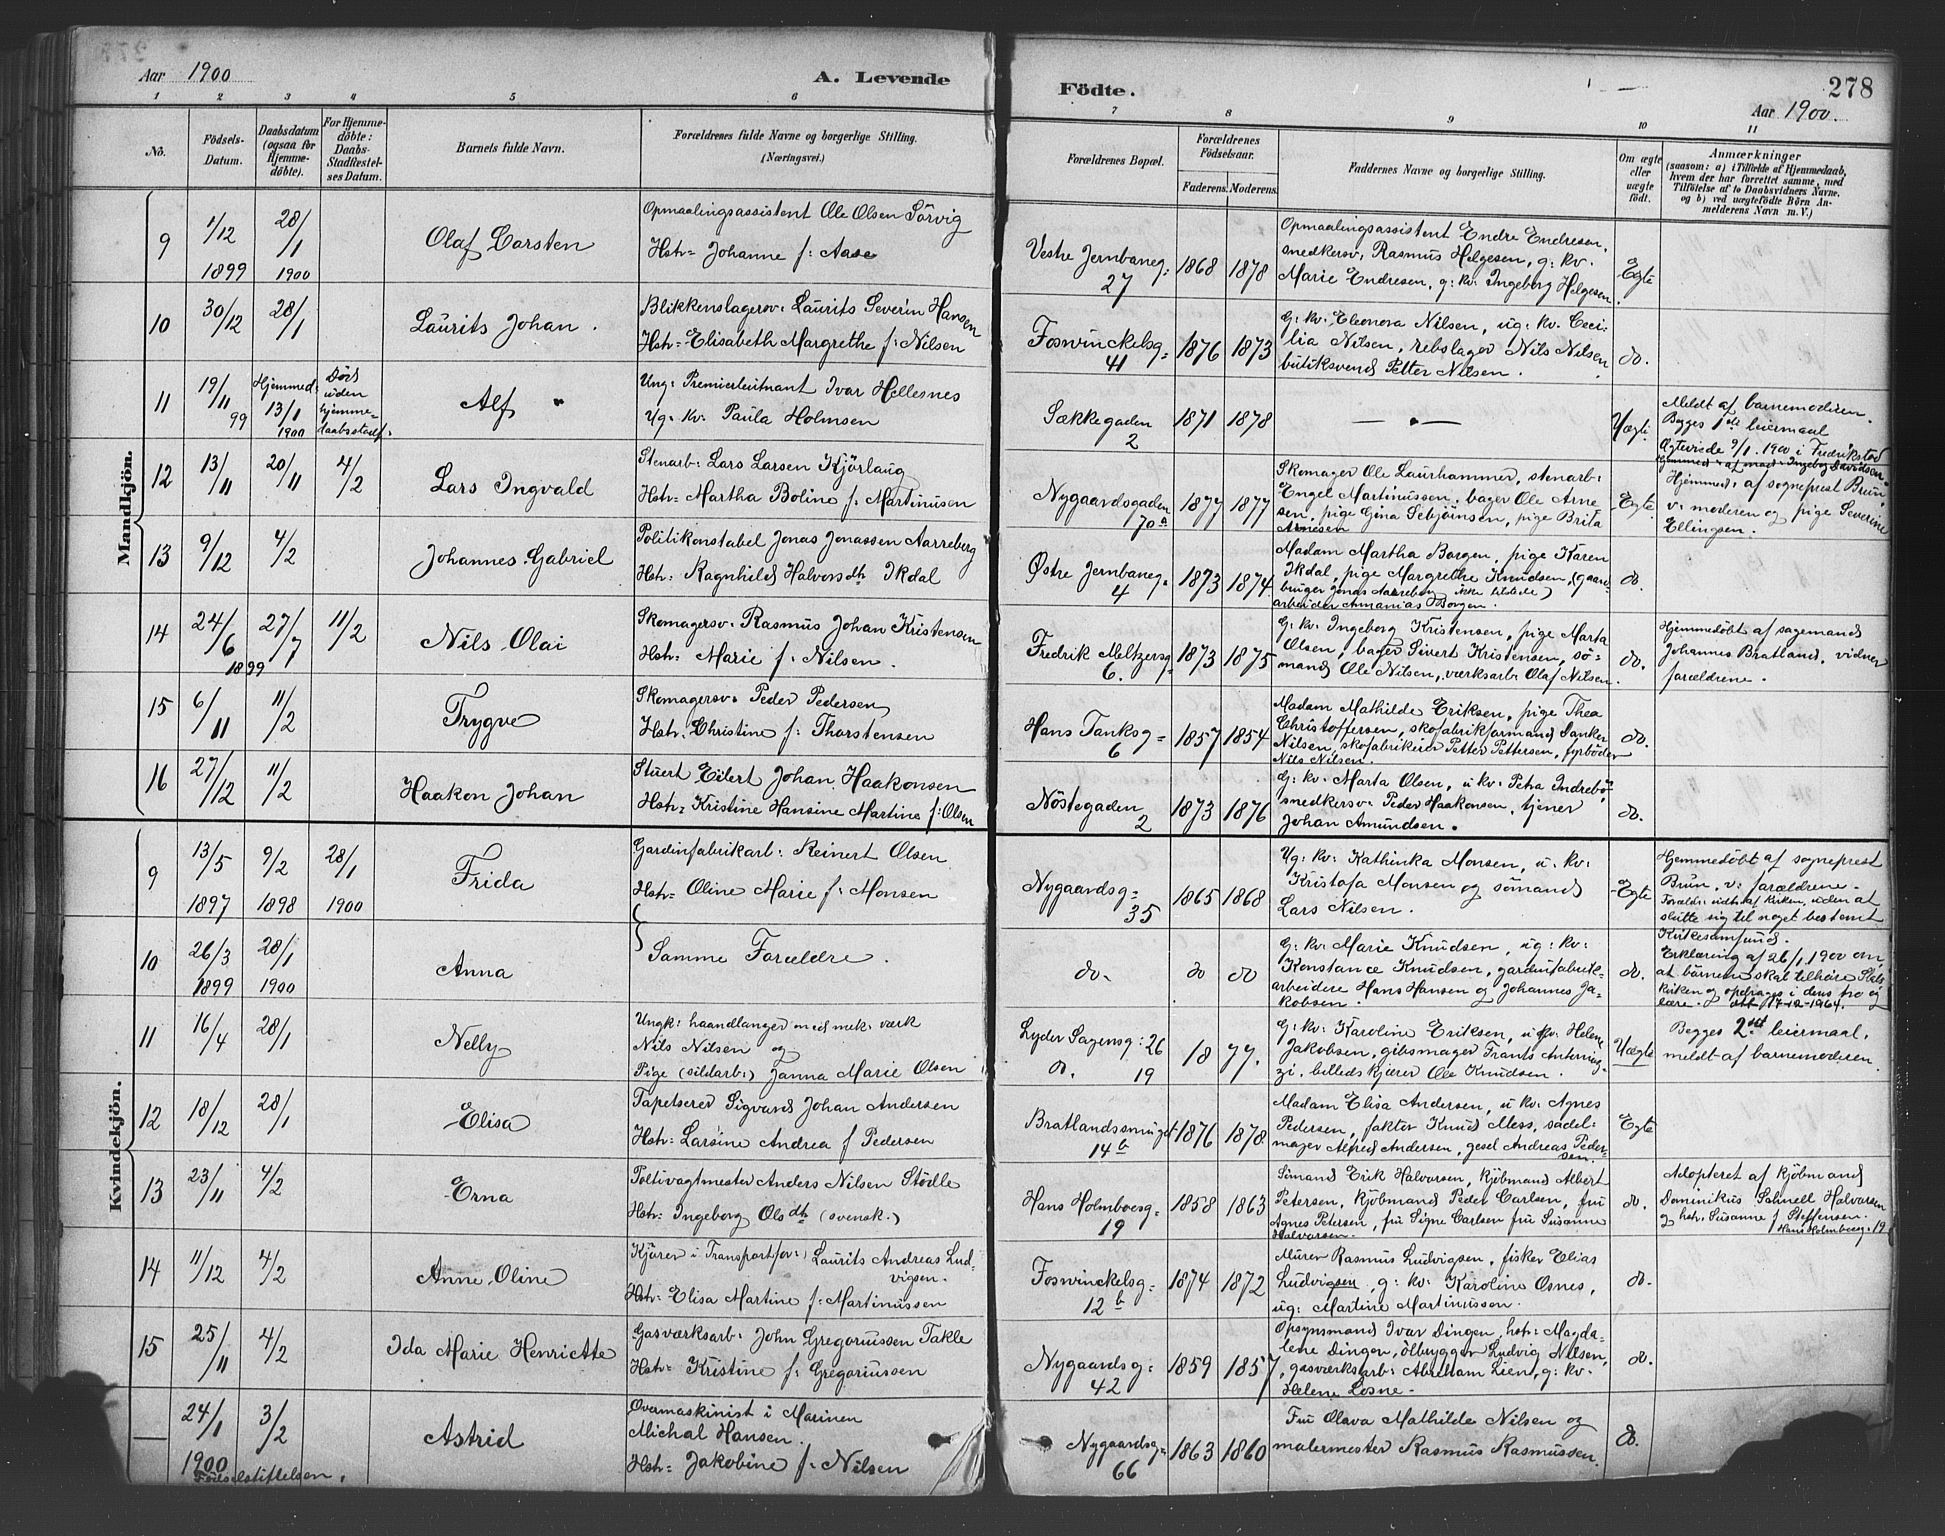 Aar 1900
A. Levende
Födte.
278
Aar 1900.
1 2 3 4 5 6 7 8 9 10 11
No.
Födsels-
Datum.
Daabsdatum
(ogsaa for
Hjemme-
döbte).
For Hjemme-
döbte:
Daabs-
Stadfæstel-
ses Datum.
Barnets fulde Navn.
Forældrenes fulde Navne og borgerlige Stilling.
(Næringsvei.)
Forældrenes Bopæl.
Forældrenes
Födselsaar.
Faderens. Moderens.
Faddernes Navne og borgerlige Stilling.
Om ægte
eller
uægte
födt.
Anmærkninger
(saasom: a) i Tilfælde af Hjemmedaab,
hvem der har forrettet samme, med
Tilföielse af to Daabsvidners Navne.
og b) ved uægtefödte Börn An-
melderens Navn m. V.)
Mandkjön.
9
1/12
1899
28/1
1900
Olaf Carsten
Opmaalingsassistent Ole Olsen Sörvig
Hstr= Johanne f: Aase
Vestre Jernbaneg:
27
1868
1878
Opmaalingsassistent Endre Endresen,
snedkersv: Rasmus Helgesen, g: kv:
Marie Endresen, g: kv: Ingeborg Helgesen
Egte
10
30/12
28/1
Laurits Johan.
Blikkenslagersv: Laurits Severin Hansen
Hstr= Elisabeth Margrethe f: Nilsen
Foswinckelsg=
41
1876
1873
G: kv: Eleonora Nilsen, ug: kv: Ceci-
lia Nilsen, rebslager Nils Nilsen
butiksvend Petter Nilsen.
do.
11
19/11
99
Hjemmed:
13/1
1900
Död
uden
hjemme-
daabsstadf:
Alf
Ung: Premierleitnant Ivar Hellesnes
Ug: kv: Paula Holmsen
Sækkegaden
2
1871
1878
Uægte
Meldt af barnemoderen.
Begges 1ste leiermaal
Ægteviede 9/1.1900 i Fredrikstad
12
13/11
20/11
4/2
Lars Ingvald
Stenarb: Lars Larsen Kjörlaug
Hstr= Martha Boline f: Martinusen
Nygaardsgaden
70a
1877
1877
Skomager Ole Laurhammer, stenarb:
Engel Martinussen, bager Ole Arne
sen, pige Gina Sebjörnsen, pige Brita
Arnesen
Egte
Hjemmed: af sogneprest Brun
v: moderen og pige Severine
Ellingsen.
13
9/12
4/2
Johannes Gabriel
Politikonstabel Jonas Jonassen Aarreberg
Hstr: Ragnhild Halvorsdtr Ikdal
Østre Jernbaneg.
4
1873
1874
Madam Martha Borgen, pige Karen
Ikdal, pige Margrethe Knudsen, (gaard
bruger Jonas Aarreberg ikke tilstede)
arbeider Ananias Borgen.
do.
14
24/6
1899
27/7
11/2
Nils Olai
Skomagersv: Rasmus Johan Kristensen
Hstr: Marie f: Nilsen.
Fredrik Meltzersg:
6.
1873
1875
G: kv: Ingeborg Kristensen, pige Marta
Olsen, bager Sivert Kristensen, sö-
mand Ole Nilsen, værksarb: Olaf Nilsen.
do.
Hjemmedöbt af sagemand
Johannes Bratland, vidner
forældrene.
15
6/11
11/2
Trygve
Skomagersv: Peder Pedersen
Hstr. Christine f: Thorstensen
Hans Tanksg=
6
1857
1854
Madam Mathilde Eriksen, pige Thea
Christoffersen, skofabrikformand Sanker
Nilsen, skofabrikeier Petter Pettersen, fyrböder
Nils Nilsen.
do.
16
27/12
11/2
Haakon Johan
Stuert Eilert Johan Haakonsen
Hstr= Kristine Hansine Martine f: Olsen
Nöstegaden
2
1873
1876
G: kv: Marta Olsen, u kv: Petra Indrebö,
snedkersv: Peder Haakonsen, tjener
Johan Amundsen.
do.
Kvindekjön.
9
13/5
1897
9/2
1898
28/1
1900
Frida
Gardinfabrikarb: Reinert Olsen
Hstr= Oline Marie f: Monsen
Nygaardsg=
35
1865
1868
Ug: kv: Kathinka Monsen, u: kv:
Kristofa Monsen og sömand
Lars Nilsen.
Egte
Hjemmedöbt af sogneprest
Brun, v: forældrene.
Foræld: udtr. af kirken, uden at
slutte sig til noget bestemt
kirkesamfund.
10
26/3
1899
28/1
1900
Anna
Samme Forældre.
do.
do
do
G: kv: Marie Knudsen, ug: kv:
Konstance Knudsen, gardinfabrik-
arbeidere Hans Hansen og Johannes Ja-
kobsen.
do.
Erklæring af 26/1.1900 om,
at barnene skal tilhöre Stats
kirken og opdrages i dens tro og
lære. att 17-12-1964.
11
16/4
28/1
Nelly
Ungk: haandlanger med mek: værk
Nils Nilsen og
Pige (sildarb:) Janna Marie Olsen
Lyder Sagensg: 26
do. 19
18 77.
G: kv: Karoline Eriksen, u kv: Helene
Jakobsen, gibsmager Frants Anternig-
zi, billedskjærer Ole Knudsen.
Uægte
Begges 2det leiermaal.
meldt af barnemoderen.
12
18/12
28/1
Elisa
Tapetserer Sigvard Johan Andersen
Hstr: Larsine Andrea f Pedersen
Bratlandssmuget
14b
1876
1878
Madam Elisa Andersen, u kv: Agnes
Pedersen, faktor Knud Mess, sadel-
mager Alfred Andersen, gesel Andreas Peder-
sen.
Egte
13
23/11
4/2
Erna
Politivagtmester Anders Nilsen Stödle
Hstr: Ingeborg Olsdtr (svensk.)
Hans Holmboesg=
19
1858
1863
Sömand Erik Halvorsen, kjöbmand Albert
Petersen, kjöbmand Peder Carlsen, fru
Agnes Petersen, fru Signe Carlsen fru Susanne
Halvorsen.
do.
Adopteret af kjöbmand
Dominikus Schnell Halvorsen
og hstr: Susanne f Steffensen.
Hans Holmboeg. 19
14
11/12
4/2
Anne Oline
Kjörer i Transportfor: Laurits Andreas Lud-
vigsen.
Hstr= Elisa Martine f: Martinussen
Foswinckelsg=
12b
1874
1872
Murer Rasmus Ludvigsen, fisker Elias
Ludvigsen g: kv: Karoline Osnes,
ug: Martine Martinussen.
do.
15
25/11
4/2
Ida Marie Henriette
Gasværksarb: John Gregoriussen Takle
Hstr= Kristine f: Gregoriussen
Nygaardsg:
42
1859
1857
Opsynsmand Ivar Dingen, hstr: Magda-
lene Dingen, ölbrygger Ludvig Nilsen,
gasværksarb: Abraham Lien, g: kv:
Helene Losne.
do.
24/1
1900
Födselstiftelsen.
3/2
Astrid
Overmaskinist i Marinen
Michal Hansen.
Hstr= Jakobine f: Nilsen
Nygaardsg=
66
1863
1860
Fru Olava Mathilde Nilsen og
malermester Rasmus Rasmussen.
do.